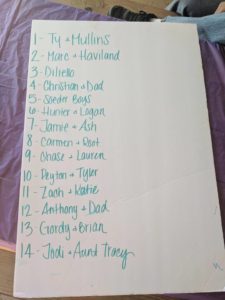 1 - Ty + Mullins
2 - Marc + Haviland
3 - Diliello
4 - Christian + Dad
5 - Soeder Boys
6 - Hunter + Logan
7 - Jamie + Ash
8 - Carmen + Root
9 - Chase + Lauren
10 - Peyton + Tyler
11 - Zach + Katie
12 - Anthony + Dad
13 - Gordy + Brian
14 - Jodi + Aunt Tracy